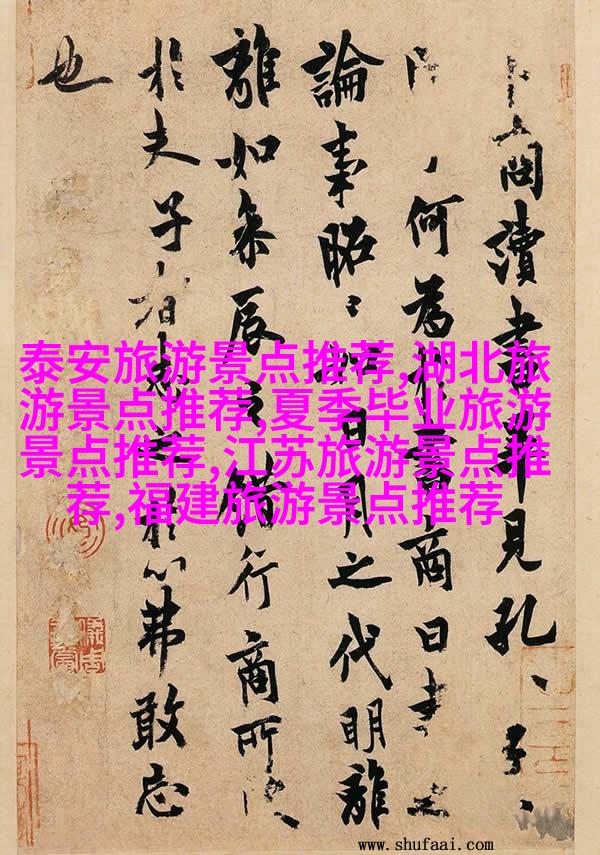 卜商讀書畢見孔、子、
何為於書商曰書之
論事昭、如日月之代明離
離如參辰之錯行商所
於夫子者志之於心弗敢忘
也
泰安旅游景点推荐,湖北旅
游景点推荐,夏季毕业旅游
景点推荐,江苏旅游景点推
荐,福建旅游景点推荐
www.shufaai.com